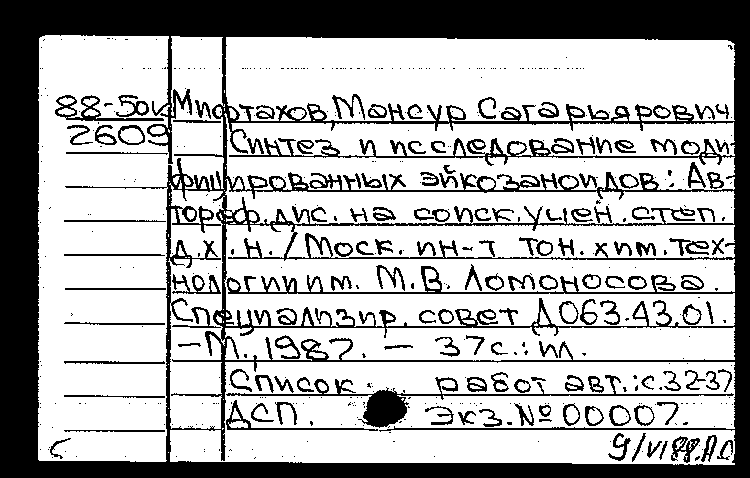 88-50к Мифтахов, Мансур Сагарьярович
2609 Синтез и исследование моди-
фицированных эйкозаноидов: Ав-
тореф. дис. на соиск. учен. степ.
д.х.н. / Моск. ин-т тон. хим. тех-
нологии им. М.В. Ломоносова.
Специализир. совет Д 063.43.01.
-М., 1987. - 37с.: ил.
Список работ авт.: с.32-37
ДСП. Экз. № 00007.
9/VI 88.